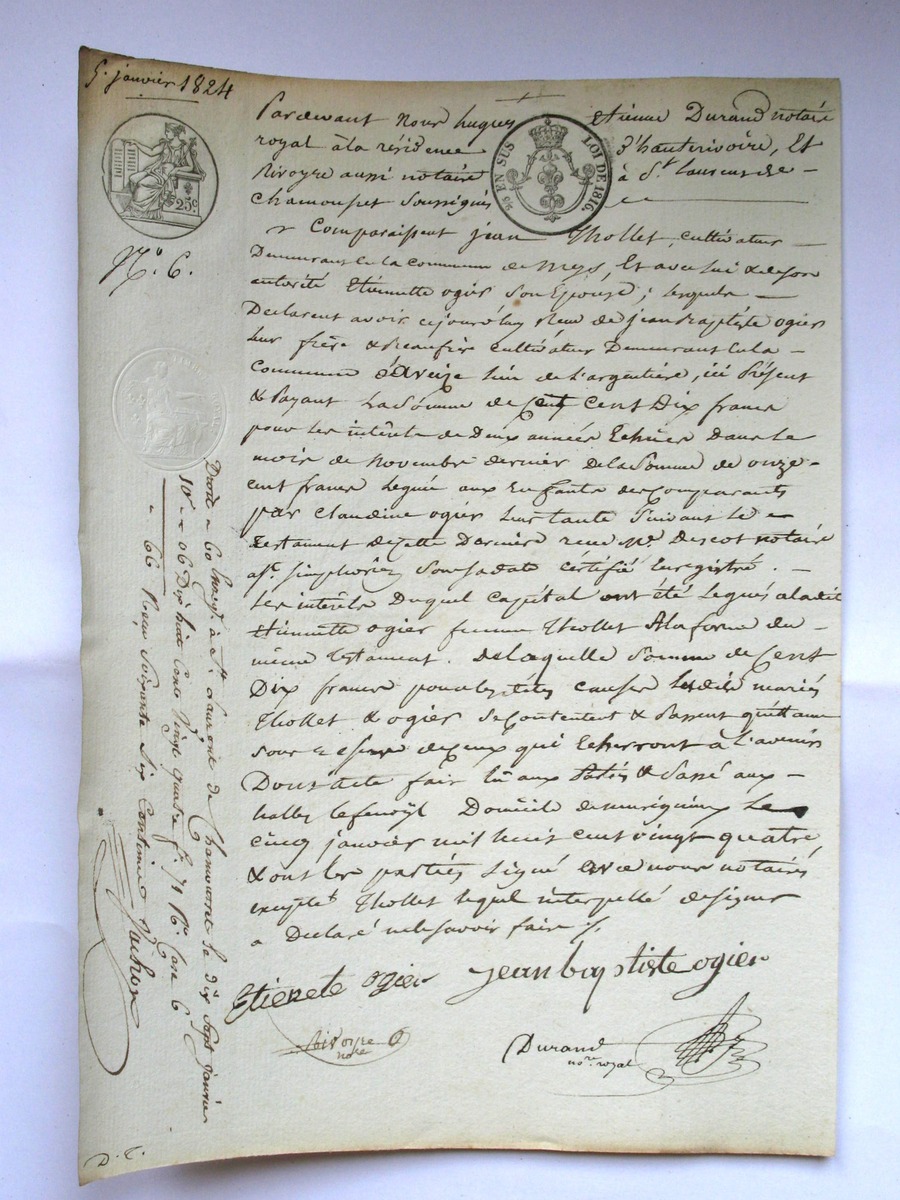 5. janvier 1824
25c
EN SUS
LOI DE 1816.
N.° 6.
Pardevant nous hugues Etienne Durand notaire
royal à la résidence d'hauterivoire, Et
Rivoyre aussi notaire à St. Laurent de
Chamousset soussignés
Comparaissent jean Thollet, cultivateur
Demeurant de la commune de meys, Et avec lui & de son
autorité Etiennette ogier son Epouse; lesquels
Declarent avoir cejourd'huy Recu de jean Baptiste ogier
leur frère & Beaufrère cultivateur Demeurant en la
Commune d'aveize lieu de L'argentière, ici Présent
& Payant La Somme de Cent Dix francs
pour les intérêts de Deux années Echues Dans le
mois de novembre dernier de la somme de onze
cent francs leguée aux Enfants des Comparants
par Claudine ogier leur tante Suivant le
Testament de cette Derniere recu Me. Descot notaire
a St. Simphorien sous sa date certifié Enregistré.
Les intérêts Duquel capital ont été Legués a la dite
Etiennette ogier femme Thollet A la forme du
même testament. De laquelle Somme de Cent
Dix francs pour les dites causes lesdits mariés
Thollet & ogier se Contentent & Passent quittance
sous reserve de ceux qui Echerront à l'avenir
Dont acte fait lû aux Partis & Passé aux
halles le fenoÿl Domicile de meriguieux Le
cinq janvier mil huit cent vingt quatre,
& ont les parties signé avec nous notaires
excepté Thollet lequel interpellé de signer
a Declaré ne le savoir faire ./.
Etienete ogier
jean baptiste ogier
Rivoyre nore
Durand nore royal
Enregé. à St. Laurent de Chamousset le dix Sept janvier
Dix huit Cent Vingt quatre fo. 71 Ro. Case 6
Reçu Soixante Six Centimes
Droit 60
10e 06
66
Vachon
D. T.